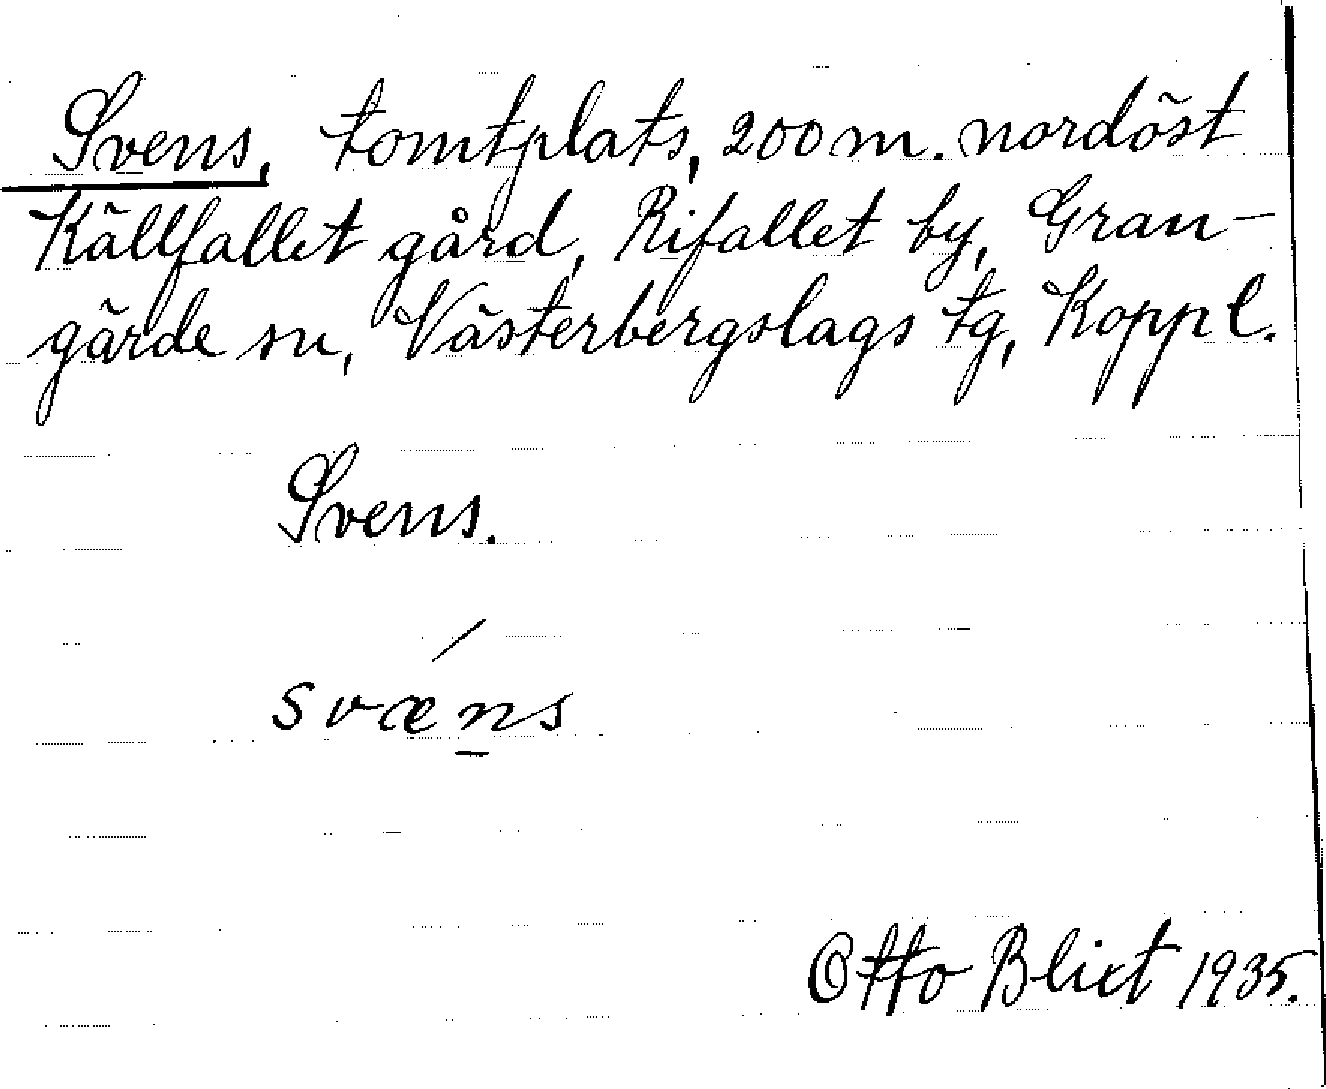 Svens, tomtplats, 200 m. nordöst
Källfallet gård, Rifallet by, Gran-
gärde sn, Västerbergslags tg, Koppl.
Svens.
svǽn̲s
Otto Blixt 1935.